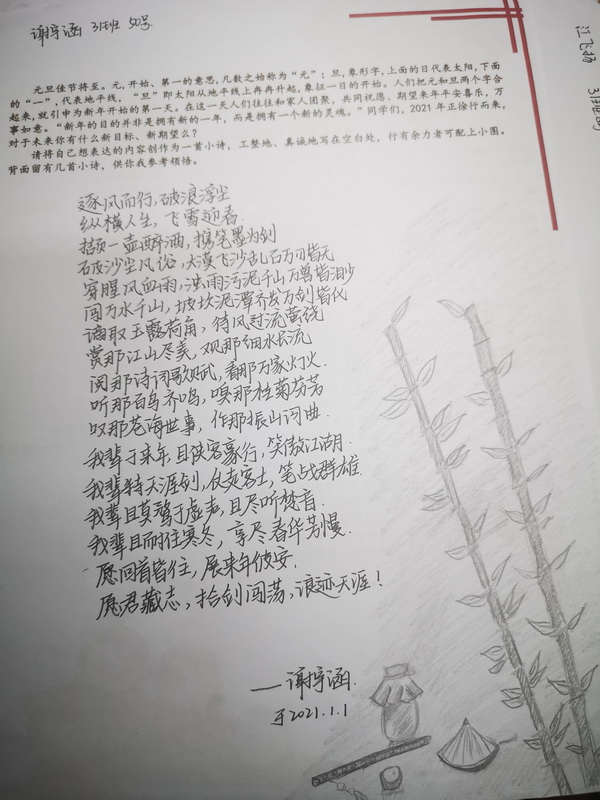 谢宇涵 31班 50号
江飞扬
31班
元旦佳节将至。元，开始、第一的意思，凡数之始称为“元”；旦，象形字，上面的日代表太阳，下面
的“一”，代表地平线，“旦”即太阳从地平线上冉冉升起，象征一日的开始。人们把元和旦两个字合
起来，就引申为新年开始的第一天。在这一天人们往往和家人团聚，共同祝愿、期望来年平安喜乐，万
事如意。“新年的目的并非是拥有新的一年，而是拥有一个新的灵魂。”同学们，2021年正徐行而来，
对于未来你有什么新目标、新期望么？
请将自己想表达的内容创作为一首小诗，工整地、真诚地写在空白处，行有余力者可配上小图。
背面留有几首小诗，供你我参考领悟。
逐风而行，破浪浮尘
纵横人生，飞雪迎春
掂一壶醉酒，携笔墨为剑
破沙尘风俗，大漠飞沙乱石万刃皆无
穿腥风血雨，洪雨污泥千山万兽皆泪妙
闯万水千山，坡坎泥潭齐发万剑皆化
谪取玉露荷角，待风过流萤绕
赏那江山尽美，观那细水长流
阅那诗词歌赋，看那万家灯火.
听那百鸟齐鸣，嗅那桂菊芬芳
叹那苍海世事，作那振山词曲.
我辈于来年，且陕客豪行，笑傲江湖.
我辈持天涯剑，仗卖客士，笔战群雄.
我辈且莫骛于虚声，且尽听梵音.
我辈且耐住寒冬，享尽春华芳慢.
愿回首皆往，展来年彼安.
愿君藏志，拾剑闯荡，浪迹天涯！
—谢宇涵.
于2021.1.1